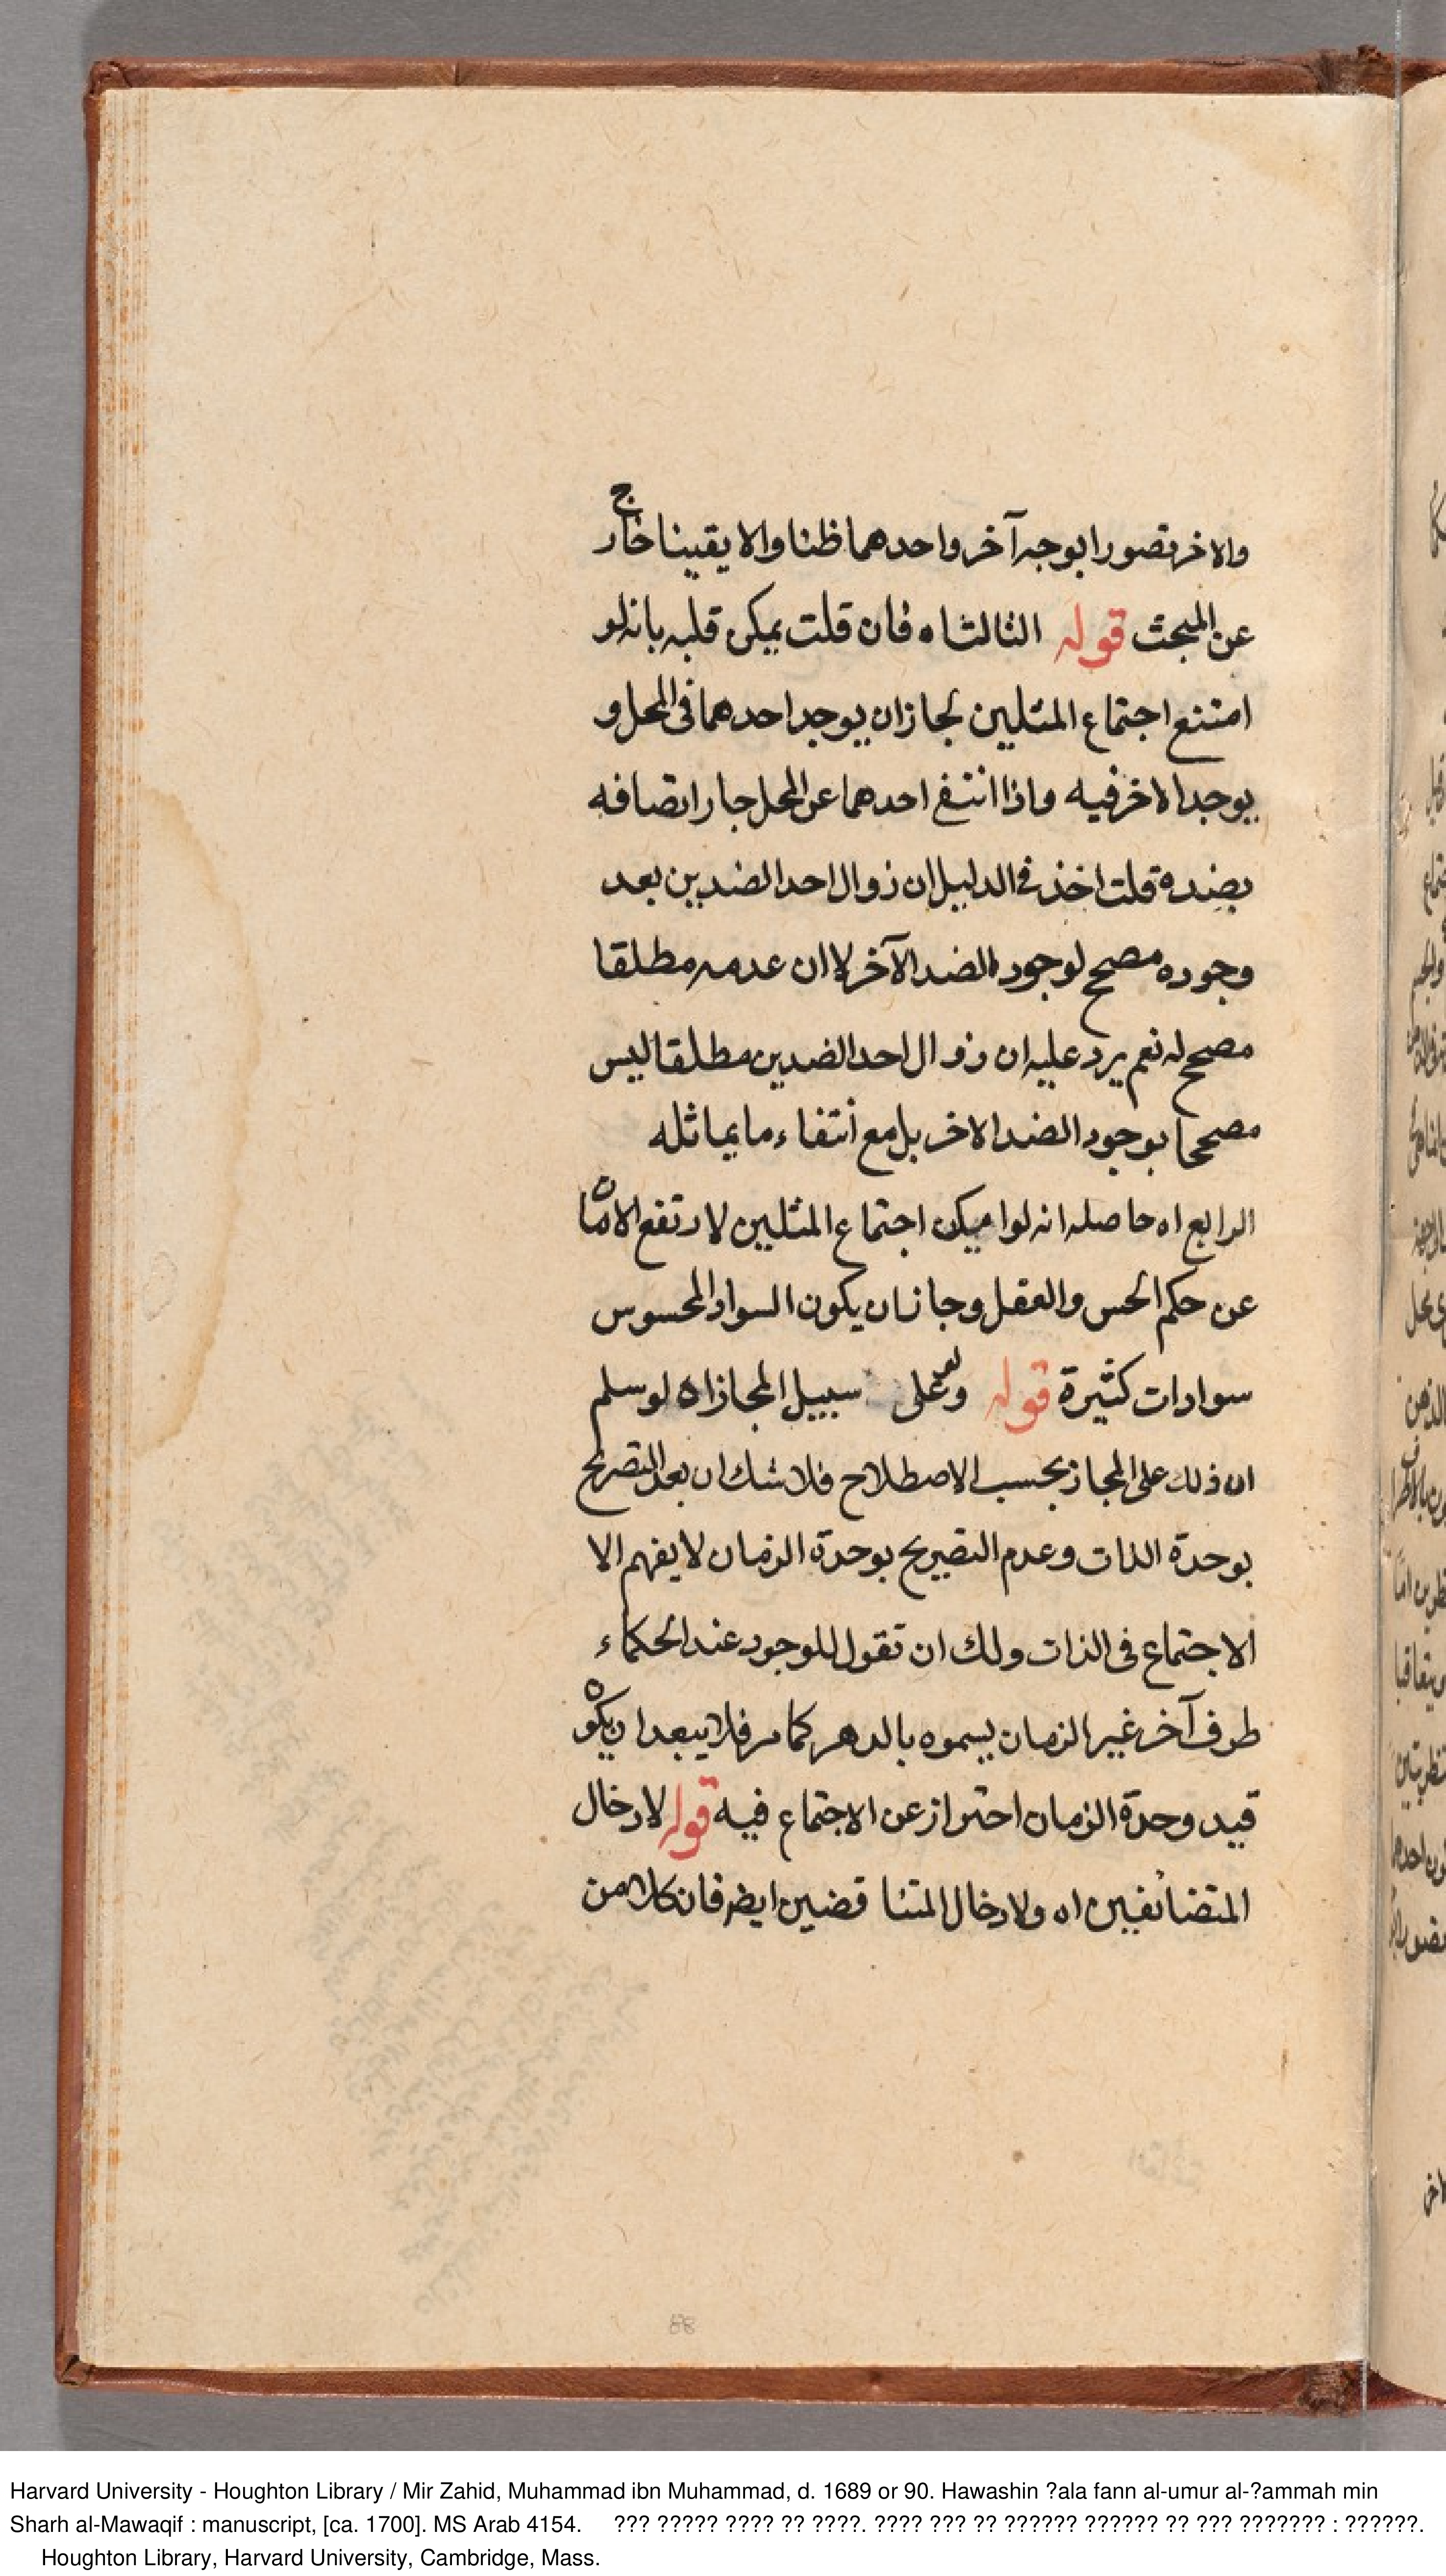 والاخر تصورا بوجه آخر واحدهما ظنا والا يقينا خارج
عن المبحث قوله الثالث اه فان قلت يمكن قلبه بانه لو
امتنع اجتماع المثلين لجاز ان يوجد احدهما فى المحل و
يوجد الاخر فيه واذا انتفى احدهما عن المحل جاز اتصافه
بضده قلت اخذ فى الدليل ان زوال احد الضدين بعد
وجوده مصحح لوجود الضد الآخر لا ان عدمه مطلقا
مصحح له نعم يرد عليه ان زوال احد الضدين مطلقا ليس
مصححا بوجود الضد الاخر بل مع انتفاء ما يماثله
الرابع اه حاصله انه لو امكن اجتماع المثلين لارتفع الامان
عن حكم الحس والعقل وجاز ان يكون السواد المحسوس
سوادات كثيرة قوله على سبيل المجاز اه لو سلم
ان ذلك على المجاز بحسب الاصطلاح فلا شك ان بعد التصريح
بوحدة الذات وعدم التصريح بوحدة الزمان لا يفهم الا
الاجتماع فى الذات ولك ان تقول للوجود عند الحكماء
طرف آخر غير الزمان يسموه بالدهر كما مر فلا يبعد ان يكون
قيد وحدة الزمان احتراز عن الاجتماع فيه قوله لادخال
المتضائفين اه ولادخال المتناقضين ايضا فان كلا من
88
Harvard University - Houghton Library / Mir Zahid, Muhammad ibn Muhammad, d. 1689 or 90. Hawashin ?ala fann al-umur al-?ammah min
Sharh al-Mawaqif : manuscript, [ca. 1700]. MS Arab 4154. ??? ????? ???? ?? ????. ???? ??? ?? ?????? ?????? ?? ??? ??????? : ??????.
Houghton Library, Harvard University, Cambridge, Mass.